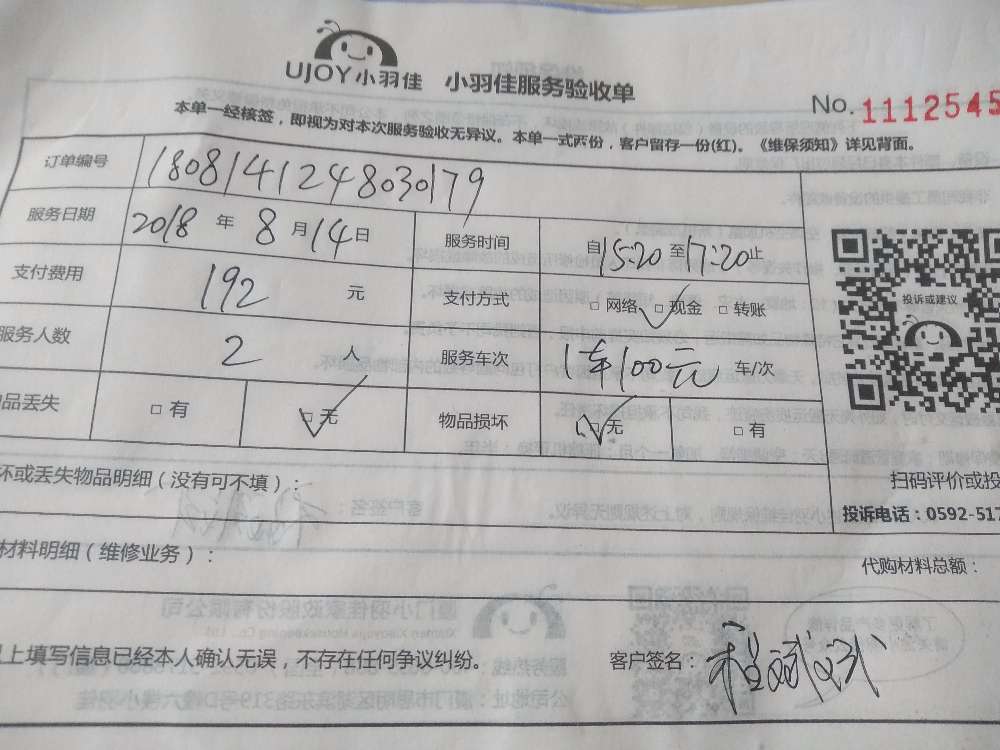 UJOY小羽佳 小羽佳服务验收单
No. 1112545
本单一经核签，即视为对本次服务验收无异议。本单一式两份，客户留存一份(红)。《维保须知》详见背面。
订单编号 1808141248030179
服务日期 2018 年 8 月 14 日 服务时间 自 15:20 至 17:20 止
支付费用 192 元 支付方式 □ 网络 □ 现金 □ 转账
服务人数 2 人 服务车次 1车100元 车/次
品丢失 □ 有 □ 无 物品损坏 □ 无 □ 有
投诉或建议
扫码评价或投
投诉电话：0592-517
坏或丢失物品明细（没有可不填）：
材料明细（维修业务）： 代购材料总额：
上填写信息已经本人确认无误，不存在任何争议纠纷。 客户签名：